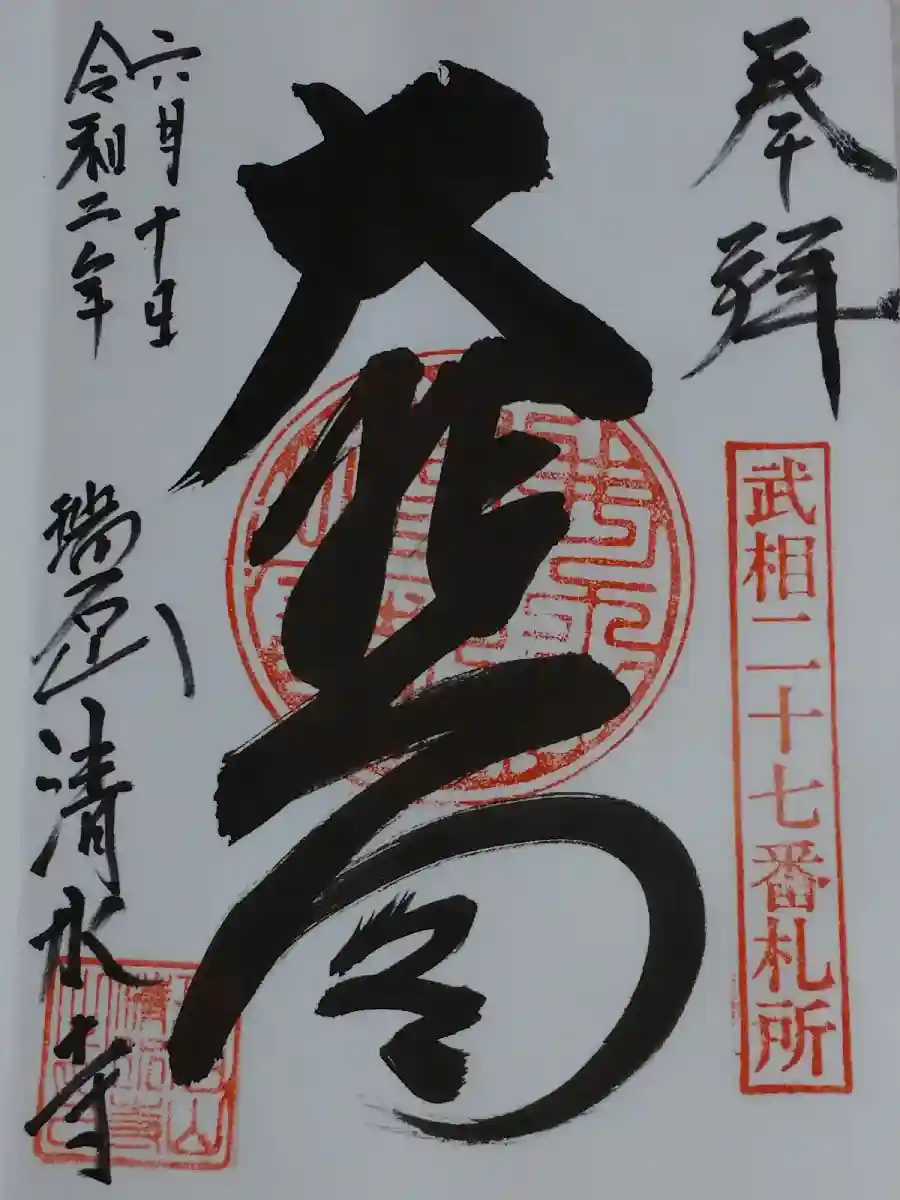 奉拝
武相二十七番札所
大悲閣
六月十日
令和二年
瑞石山清水寺